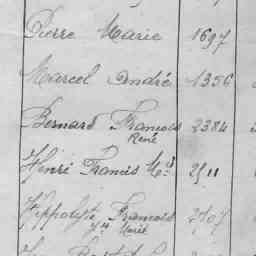 Pierre Marie 1697
Marcel André 1356
Bernard François 2384
René
Henri Francis M. 2511
Hippolyte François 2707
Marie